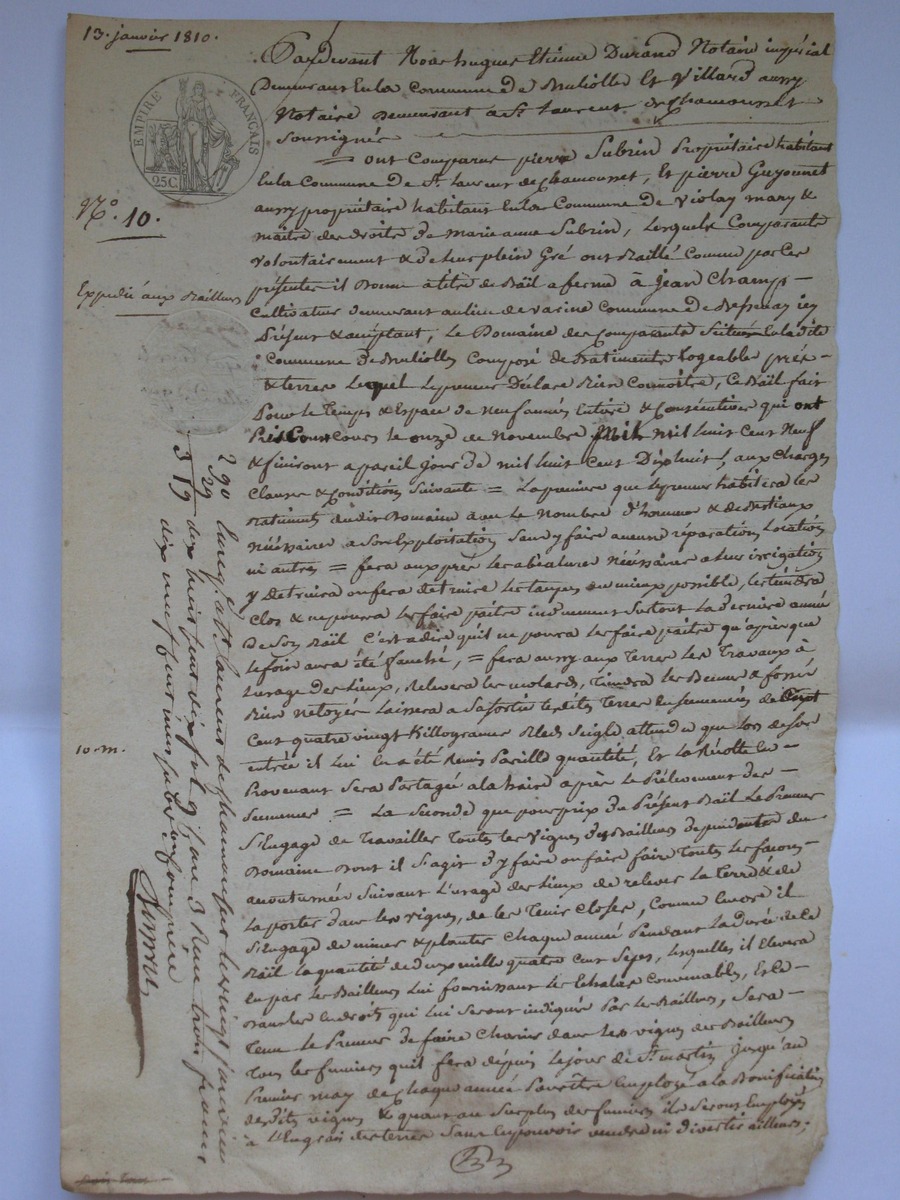 13. janvier 1810.
EMPIRE FRANÇAIS
25C
N.o 10.
Expedié aux Bailleurs
10. m.
Pardevant Nous hugues Etienne Durand Notaire impérial
Demeurant En la Commune De Brullioles Et Villard aussy
Notaire Demeurant a St. Laurent de Chamousset
Soussignés
= ont Comparus pierre Subrin Propriétaire habitant
En la Commune De St. Laurent de Chamousset, Et pierre Guyonnet
aussy propriétaire habitant En la Commune De Violay mary &
maitre des droits de Marie anne Subrin, Lesquels Comparants
volontairement & de leur plein Gré ont Baillé Comme par les
présentes il Donne a titre de Bail a ferme à Jean Champ
Cultivateur demeurant au lieu de varine Commune De Bessenay icy
Présent & acceptant, Le Domaine des Comparants Scitué En la dite
Commune De Brullioles Composé de Batiments Logeables prés
& terres Lequel Le preneur Déclare Bien Connoitre, Ce Bail fait
Pour le Temps & Espace de Neuf années Entières & Consécutives qui ont
Pris Cours le onze de Novembre mil huit Cent Neuf
& finiront a pareil jour de mil huit Cent Dix huit, aux Charges
Clauses & Conditions Suivante = La premiere que le preneur habitera les
Batiments dudit Domaine avec le Nombre d'hommes & de Bestiaux
Nécéssaires a Son Exploitation Sans y faire aucune réparation Locative
ni autres = fera aux prés les abéalures Nécéssaires a leur irrigation
y Detruira ou fera detruire les taupes au mieux possible, les tiendra
Clos & ne poura les faire paitre induement Surtout La derniere année
De Son Bail C'est a dire qu'il ne poura les faire paitre qu'après que
le foin aura été fauché, = fera aussy aux Terres les Travaux à
L'usage Des Lieux, Relevera les molards, Tiendra les & fossés
Bien Netoyés Laissera a Sa Sortie les dites Terres En Semences de
Cent quatre vingt Killogrames Bled Seigle attendu que lors de Son
entrée il Lui En a été Remis Pareille quantité, Et La Récolte En
Provenant Sera Partagée a la haire après le Prélevement des
Semences = La Seconde que pour prix du Présent Bail Le Preneur
S'Engage de Travailler Toutes les Vignes des Bailleurs dépendantes du
Domaine Dont il S'agit D'y faire ou faire faire Toutes les façons
accoutumées Suivant L'usage des Lieux de relever La terre & de
La porter dans les vignes, de les Tenir Closes, Comme Encore il
S'Engage de miner & planter Chaque année Pendant La Durée de Ce
Bail La quantité de deux mille quatre Cent Seps, Lesquelles il Elevera
En par les Bailleurs Lui fournissant les Echalas Convenables, Et Ce
Dans les Endroits qui Lui Seront indiqués Par les Bailleurs, Sera
Tenu le Preneur de faire Charier dans les vignes des Bailleurs
Tous les fumiers qu'il fera depuis le jour de St. martin Jusqu'au
Premier may de Chaque année Pour être Employé a la Bonification
desdites vignes & quant au Surplus des fumiers ils Seront Employés
à L'Engrais des terres Sans Les pouvoir vendre ni divertir ailleurs;
290 Enreg. à St. Laurent de Chamousset le vingt janvier
29 dix huit cent dix
319